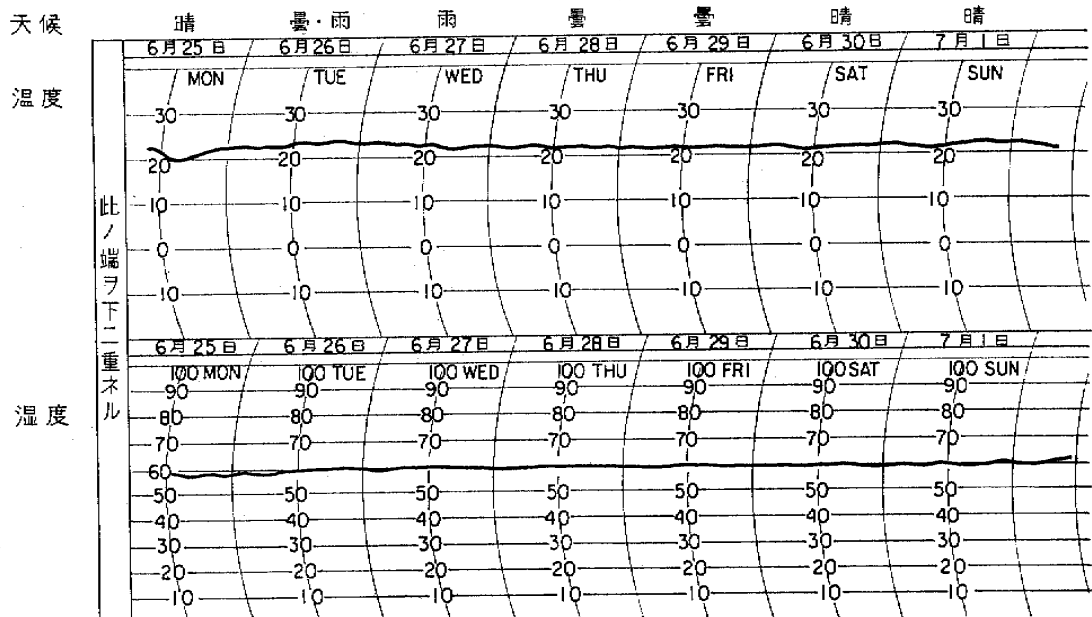 天候 晴 曇・雨 雨 曇 曇 晴 晴
6月25日 6月26日 6月27日 6月28日 6月29日 6月30日 7月1日
MON TUE WED THU FRI SAT SUN
温度
30 30 30 30 30 30 30
20 20 20 20 20 20 20
10 10 10 10 10 10 10
0 0 0 0 0 0 0
10 10 10 10 10 10 10
此ノ端ヲ下ニ重ネル
6月25日 6月26日 6月27日 6月28日 6月29日 6月30日 7月1日
100 MON 100 TUE 100 WED 100 THU 100 FRI 100 SAT 100 SUN
90 90 90 90 90 90 90
湿度
80 80 80 80 80 80 80
70 70 70 70 70 70 70
60
50 50 50 50 50 50 50
40 40 40 40 40 40 40
30 30 30 30 30 30 30
20 20 20 20 20 20 20
10 10 10 10 10 10 10